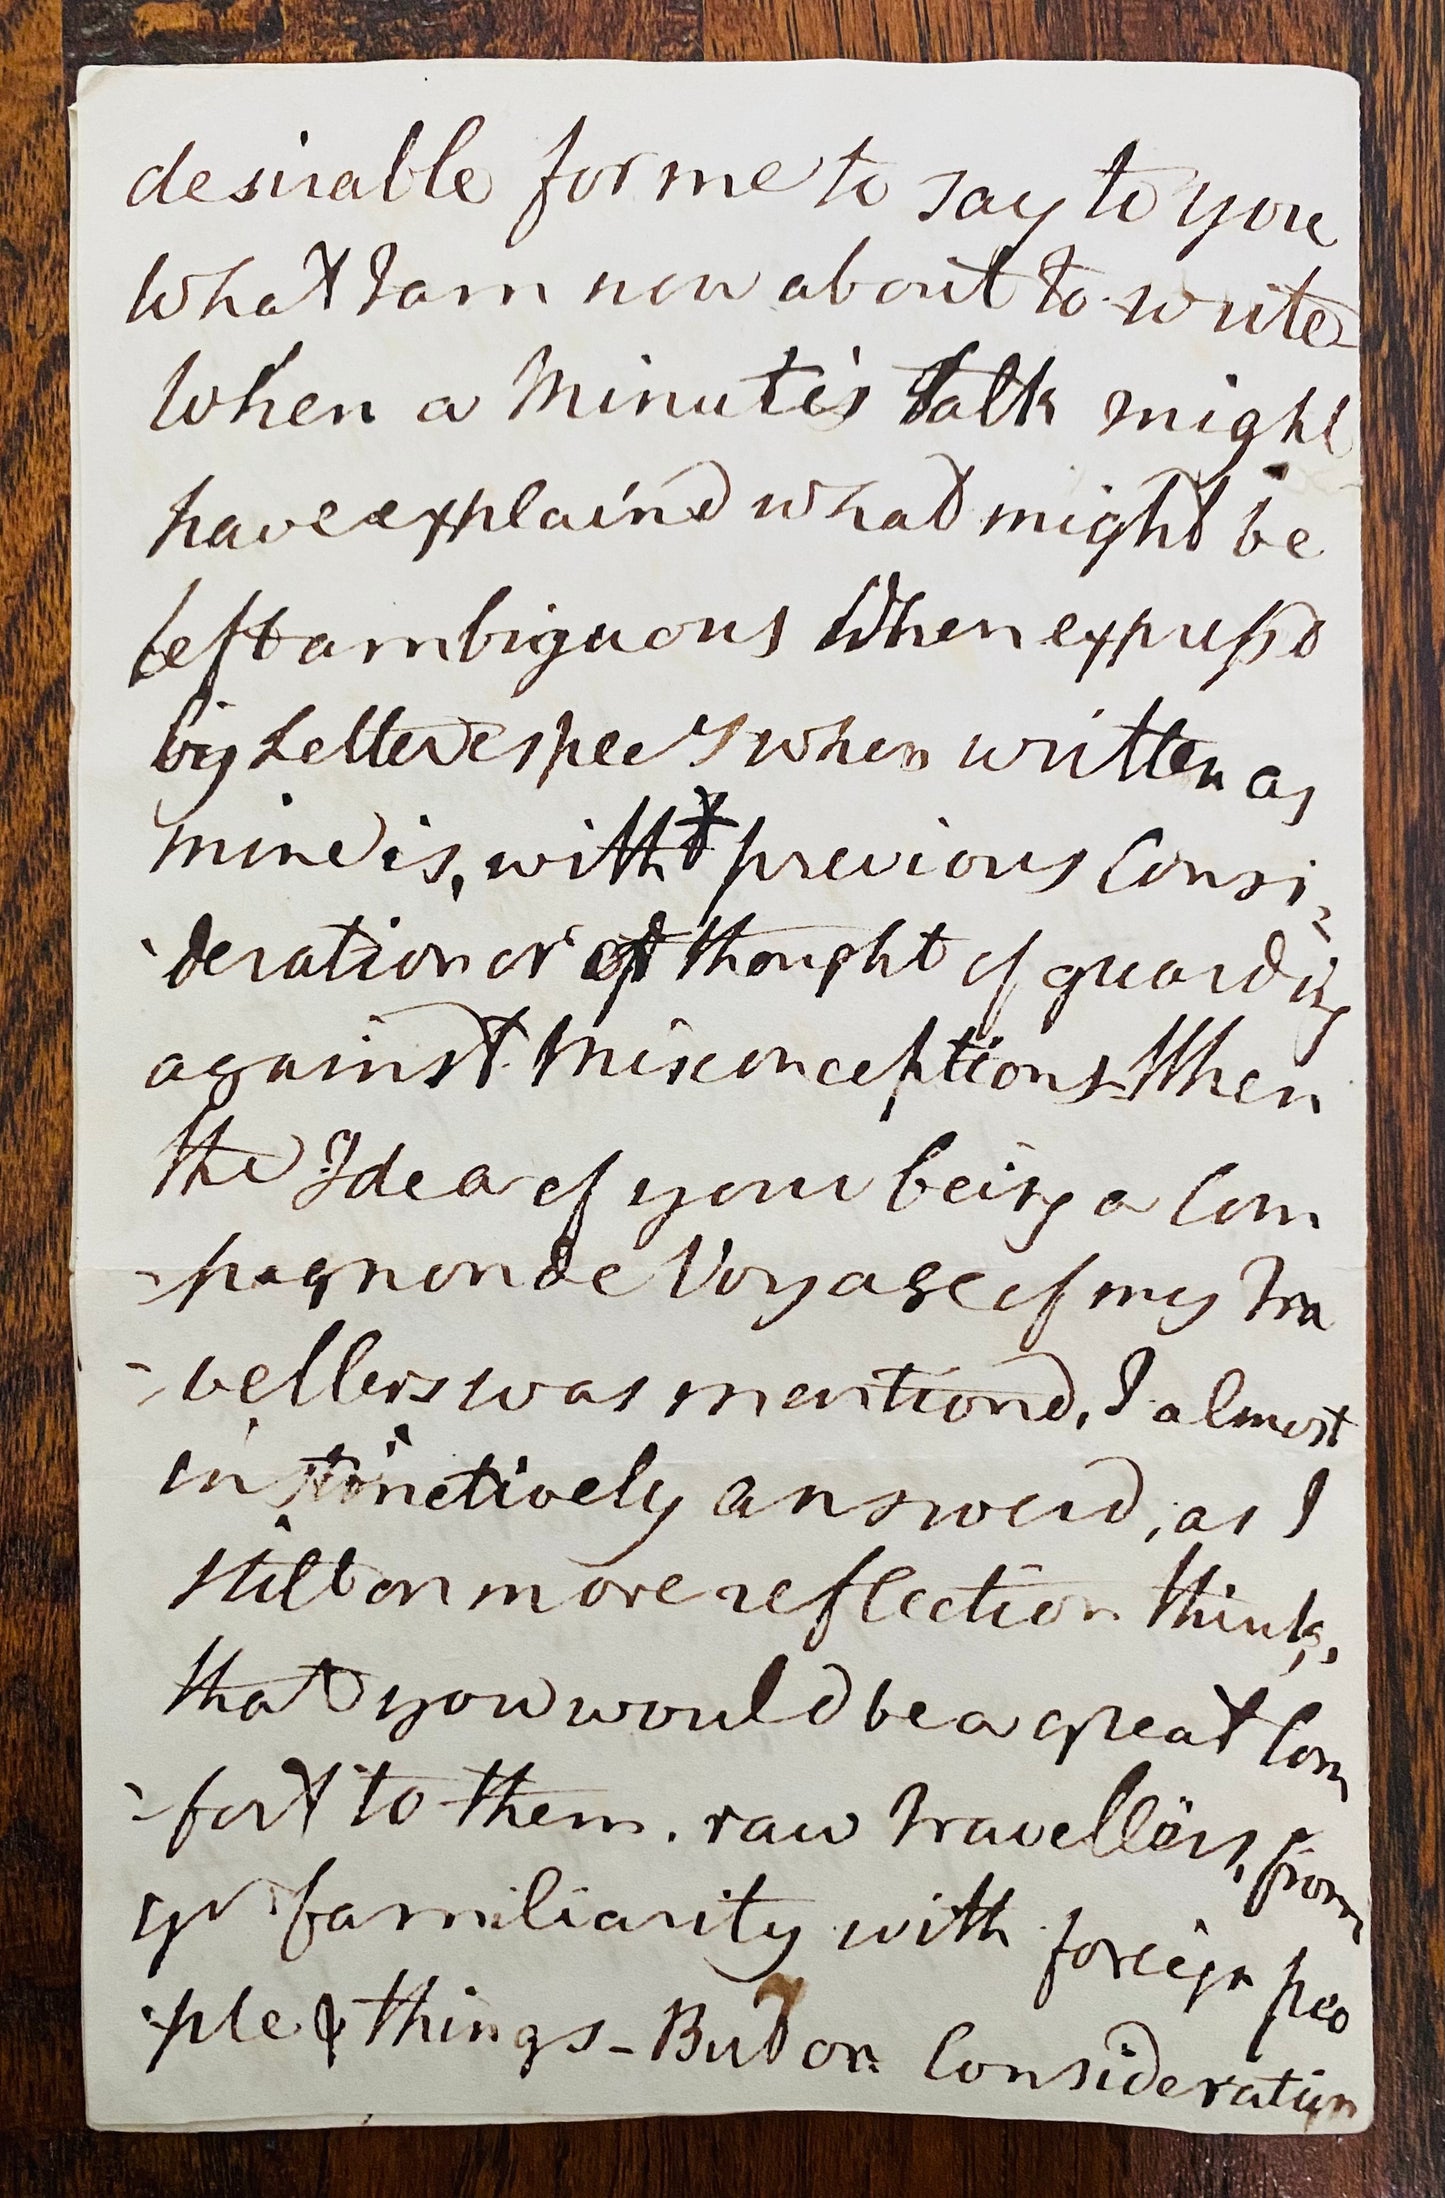 desirable for me to say to you
What I am now about to write
When a Minute's talk might
have explaind what might be
left ambiguous When expressd
by Letter especy when written as
mine is, with previous Consi-
-deration or thought of guarding
against Misconceptions - When
the Idea of your being a Com
-pagnon de Voyage of my Tra
-vellers was mentiond, I almost
instinctively answerd, as I
still on more reflection think,
that you would be a great Com
-fort to them. raw Travellers, from
yr familiarity with foreign peo
-ple & things - But on Consideration